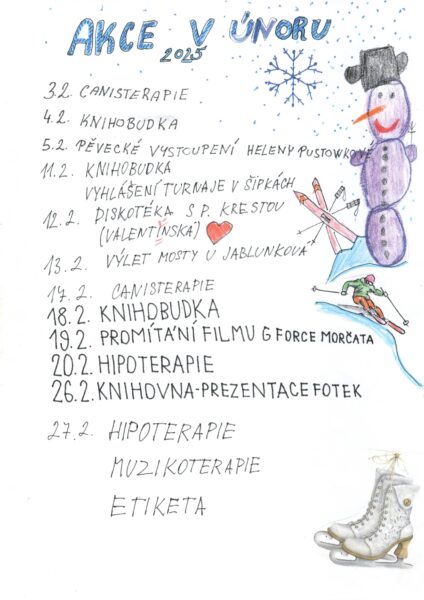 AKCE V ÚNORU
2025
3.2. CANISTERAPIE
4.2. KNIHOBUDKA
5.2. PĚVECKÉ VYSTOUPENÍ HELENY PUSTOWKOVÉ
11.2. KNIHOBUDKA
VYHLÁŠENÍ TURNAJE V ŠIPKÁCH
12.2. DISKOTÉKA S P. KRESTOU
(VALENTÍNSKÁ)
13.2. VÝLET MOSTY U JABLUNKOVA
17.2. CANISTERAPIE
18.2. KNIHOBUDKA
19.2. PROMÍTÁNÍ FILMU G FORCE MORČATA
20.2. HIPOTERAPIE
26.2. KNIHOVNA-PREZENTACE FOTEK
27.2. HIPOTERAPIE
MUZIKOTERAPIE
ETIKETA